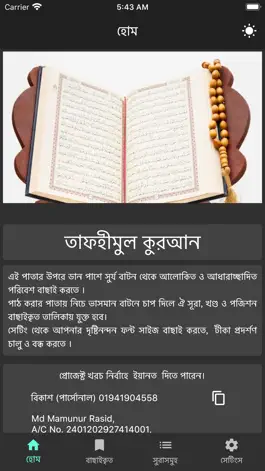 Carrier 5:43 AM
হোম
তাফহীমুল কুরআন
এই পাতার উপরে ডান পাশে সূর্য বাটন থেকে আলোকিত ও আধারাচ্ছাদিত
পরিবেশ বাছাই করতে ।
পাঠ করার পাতায় নিচে ভাসমান বাটনে চাপ দিলে ঐ সূরা, খণ্ড ও পজিশন
বাছাইকৃত তালিকায় যুক্ত হবে।
সেটিং থেকে আপনার দৃষ্টিনন্দন ফন্ট সাইজ বাছাই করতে, টীকা প্রদর্শণ
চালু ও বন্ধ করতে ।
প্রোজেক্ট খরচ নির্বাহে ইয়ানত দিতে পারেন।
বিকাশ (পার্সোনাল) 01941904558
Md Mamunur Rasid,
A/C No. 2401202927414001,
হোম
বাছাইকৃত
সুরাসমূহ
সেটিংস